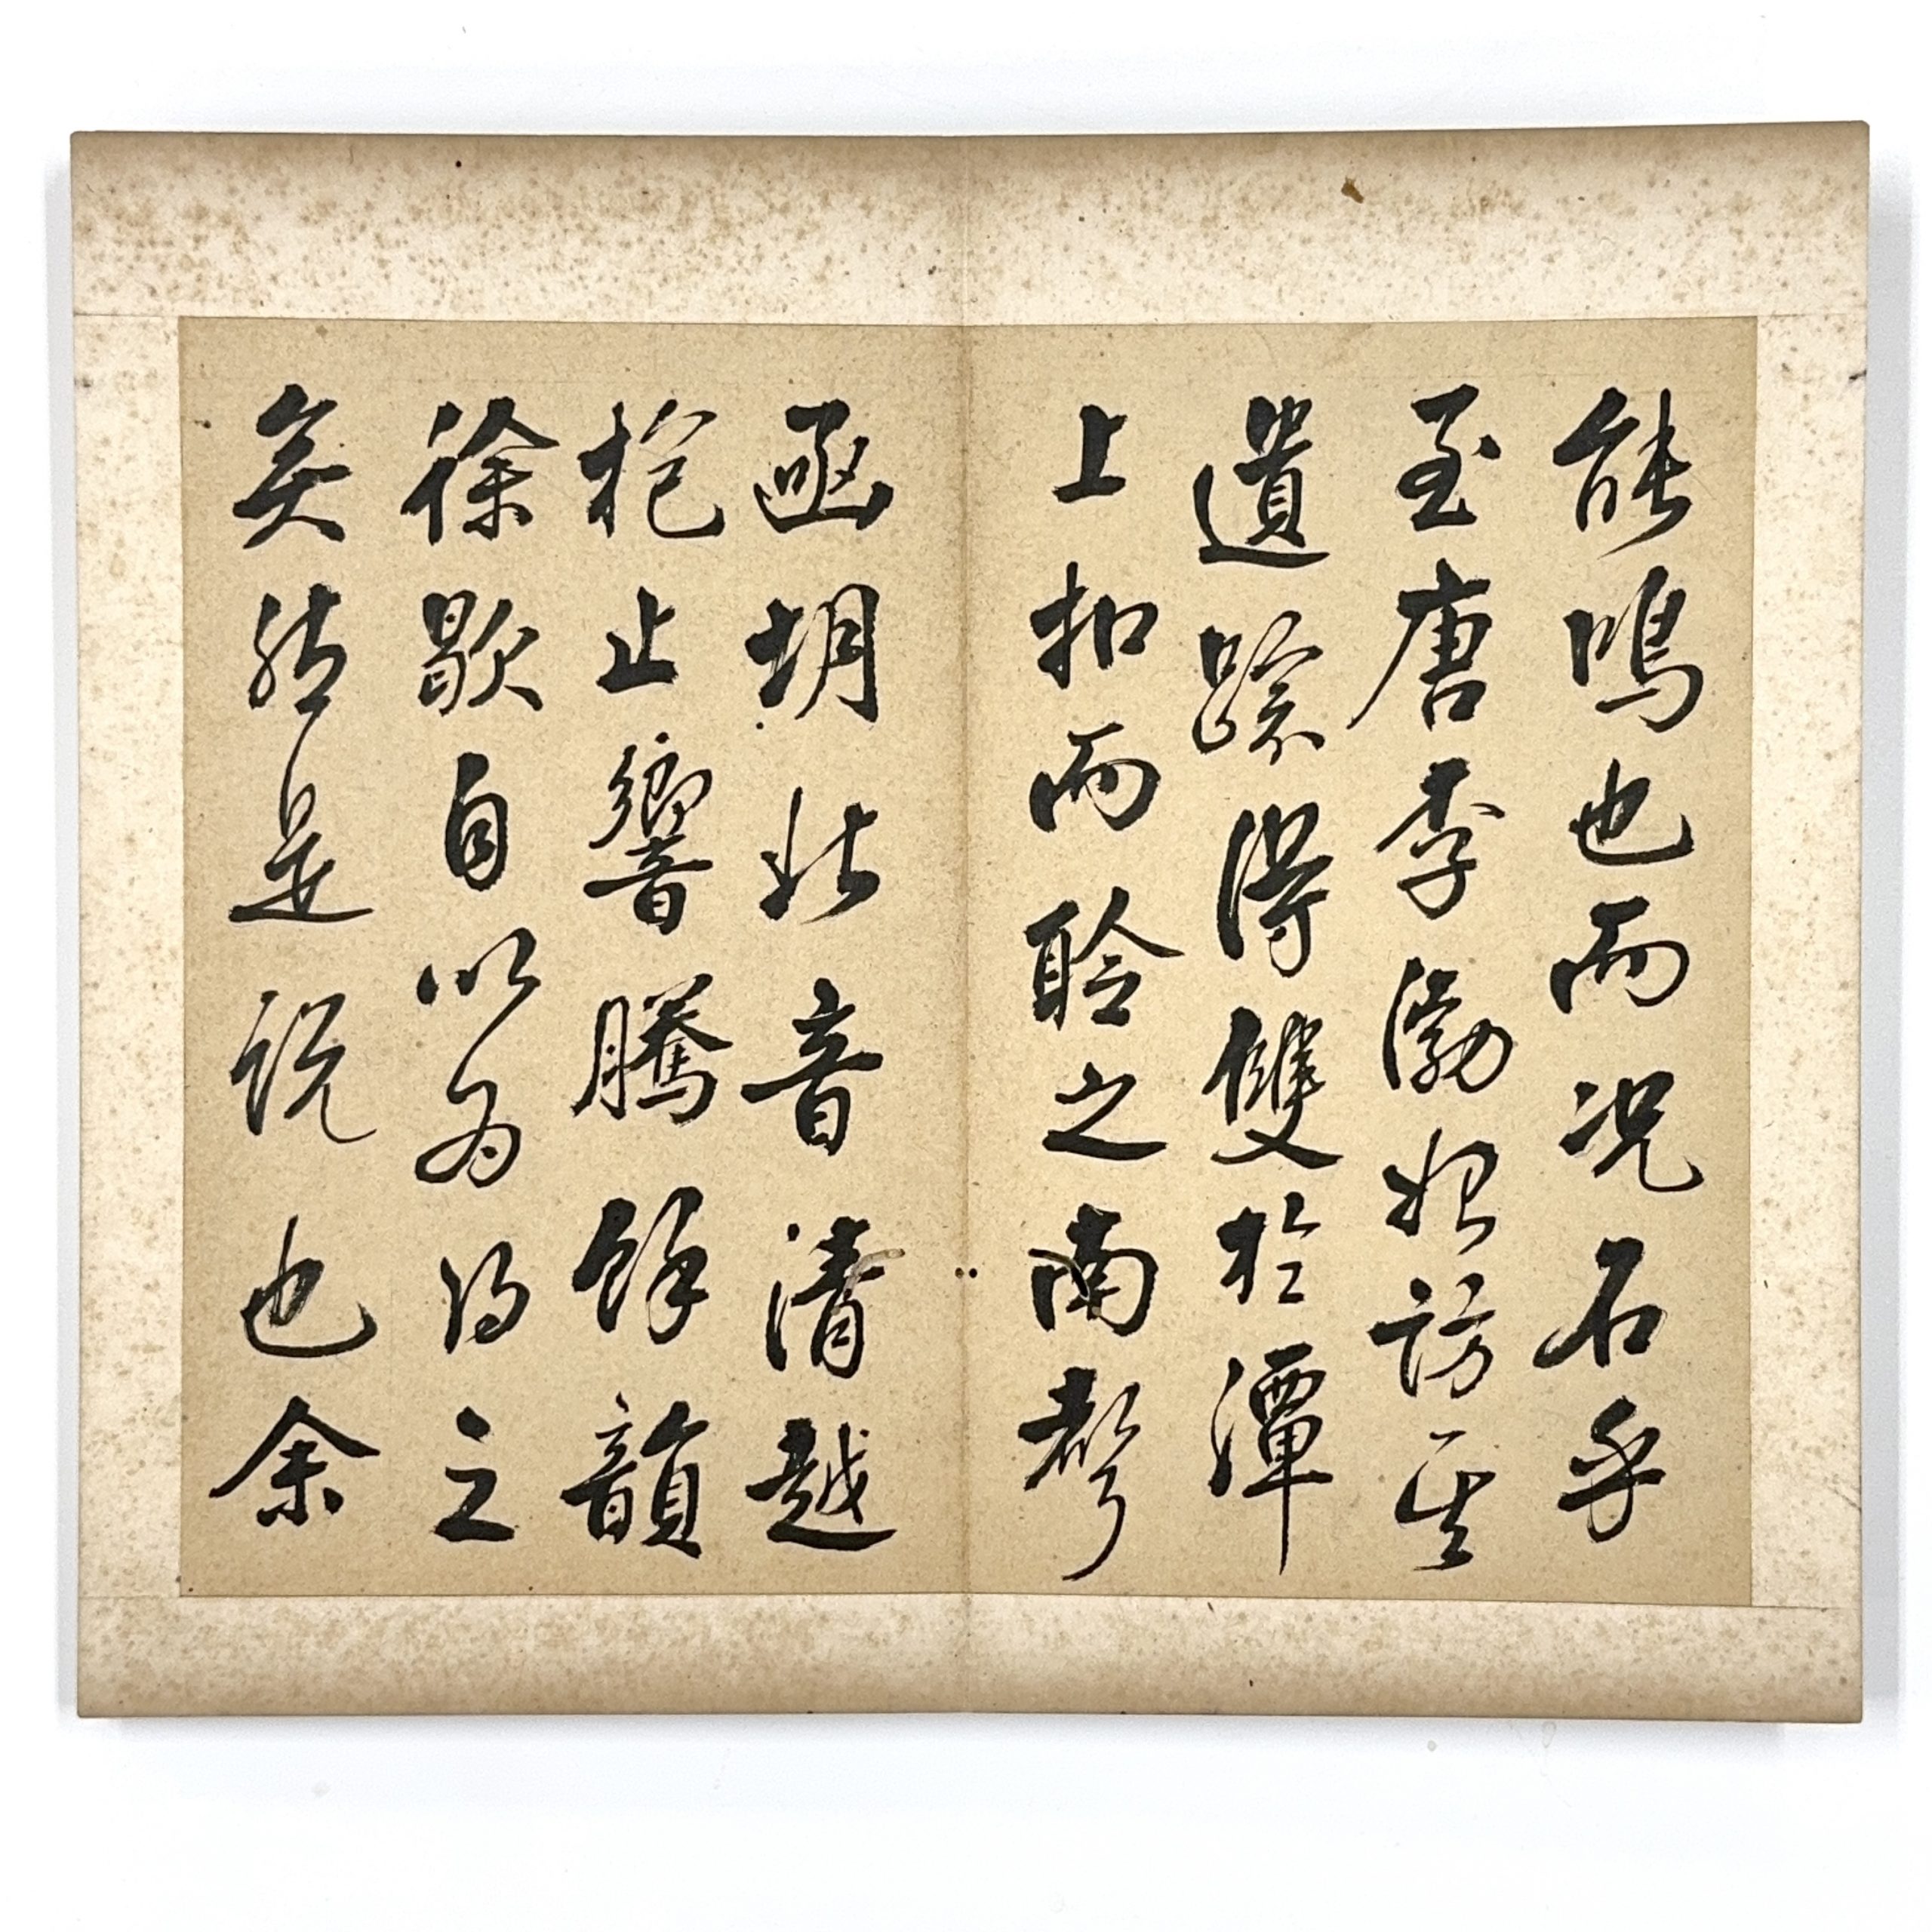 能鳴也而况石乎
至唐李渤始訪其
遺踪得雙於潭
上扣而聆之南聲
函胡北音清越
枹止響騰餘韻
徐歇自以為得之
矣然是説也余